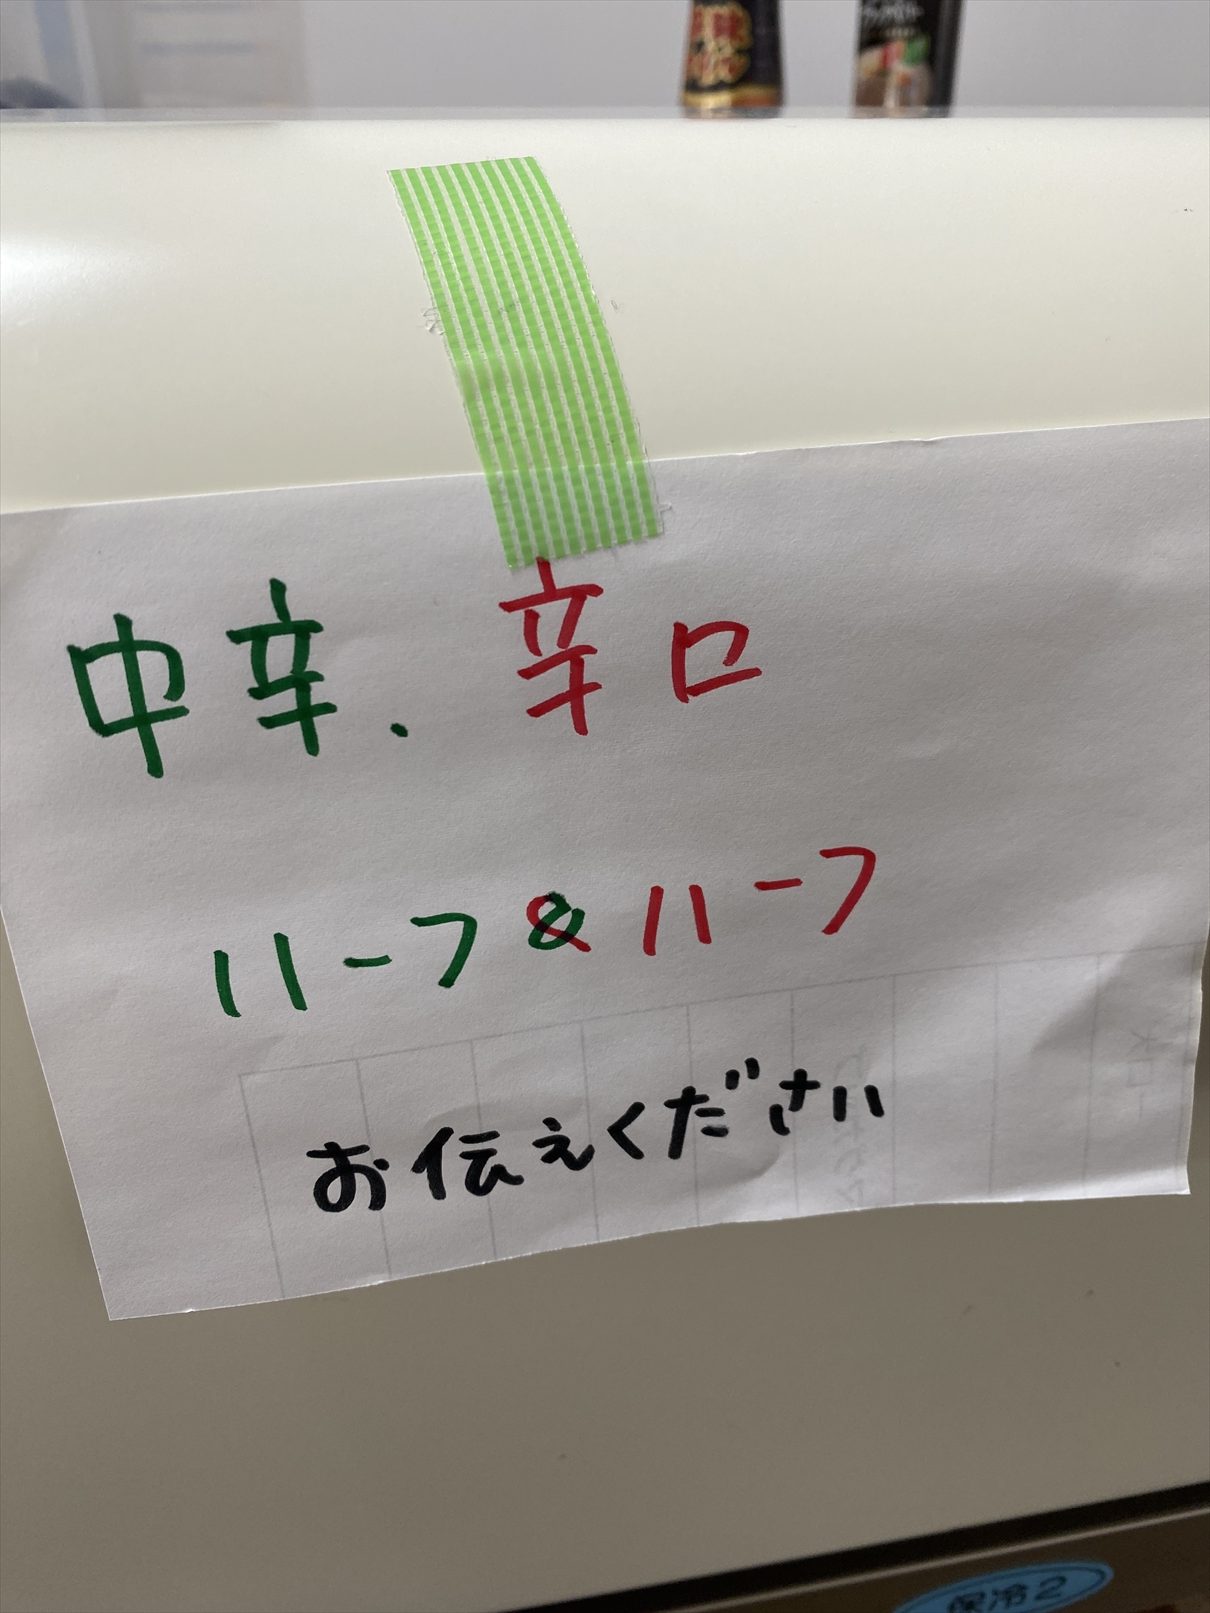 中辛.辛口
ハーフ&ハーフ
お伝えください
保冷2